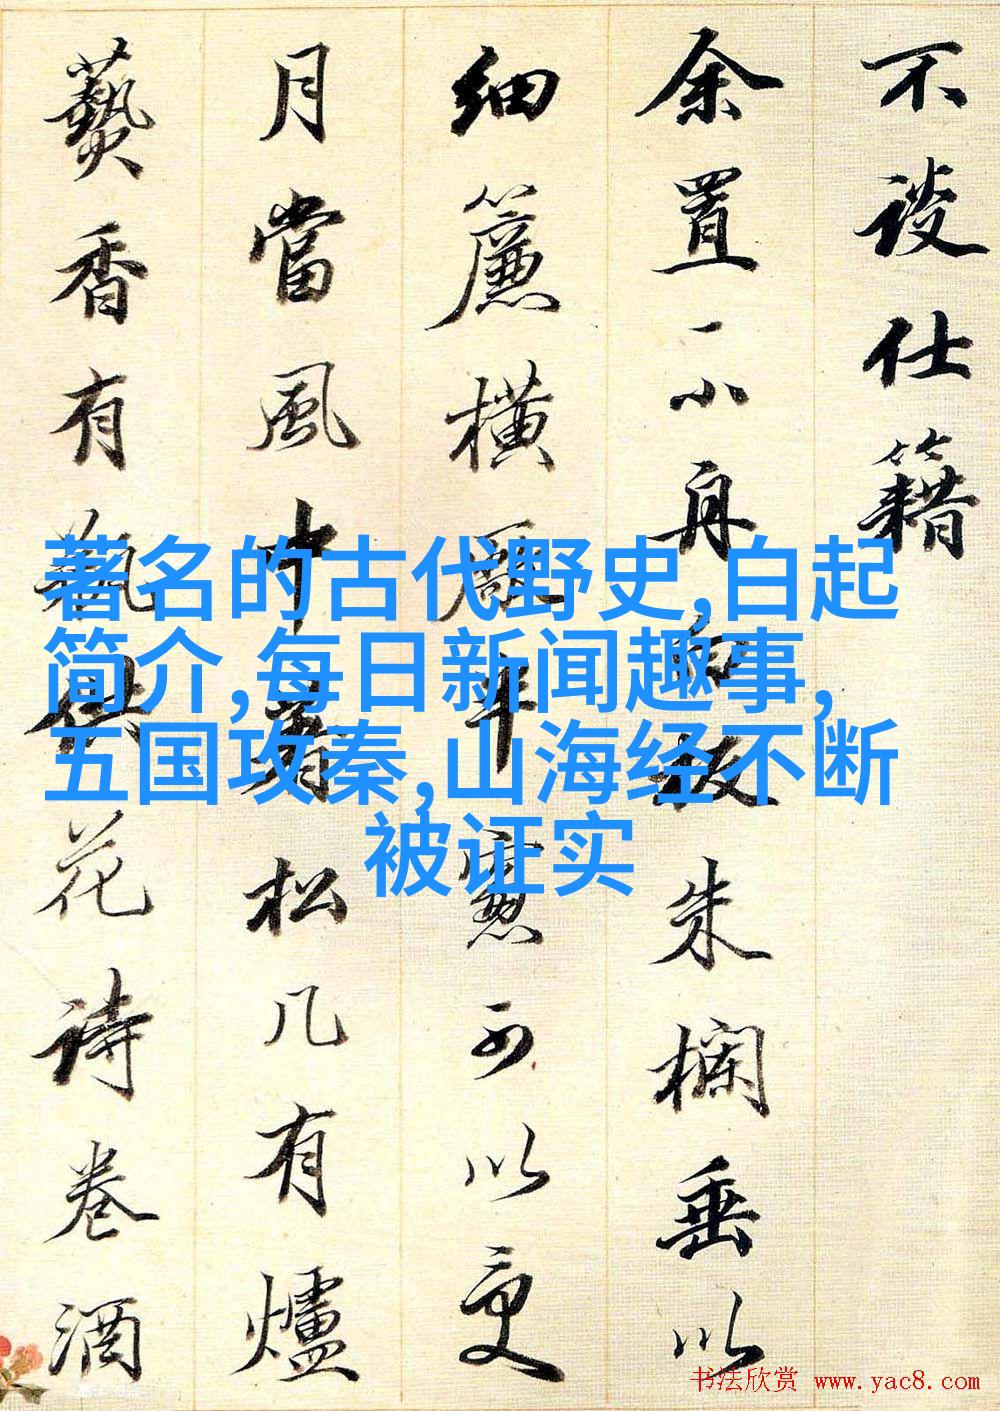 不談仕籍
余置一小舟白板朱欄垂以
細簾橫半窓可以更
月當風中有松几有爐
爇香有瓶供花詩卷酒
著名的古代野史,白起
简介,每日新闻趣事,
五国攻秦,山海经不断
被证实
书法欣赏 www.yac8.com